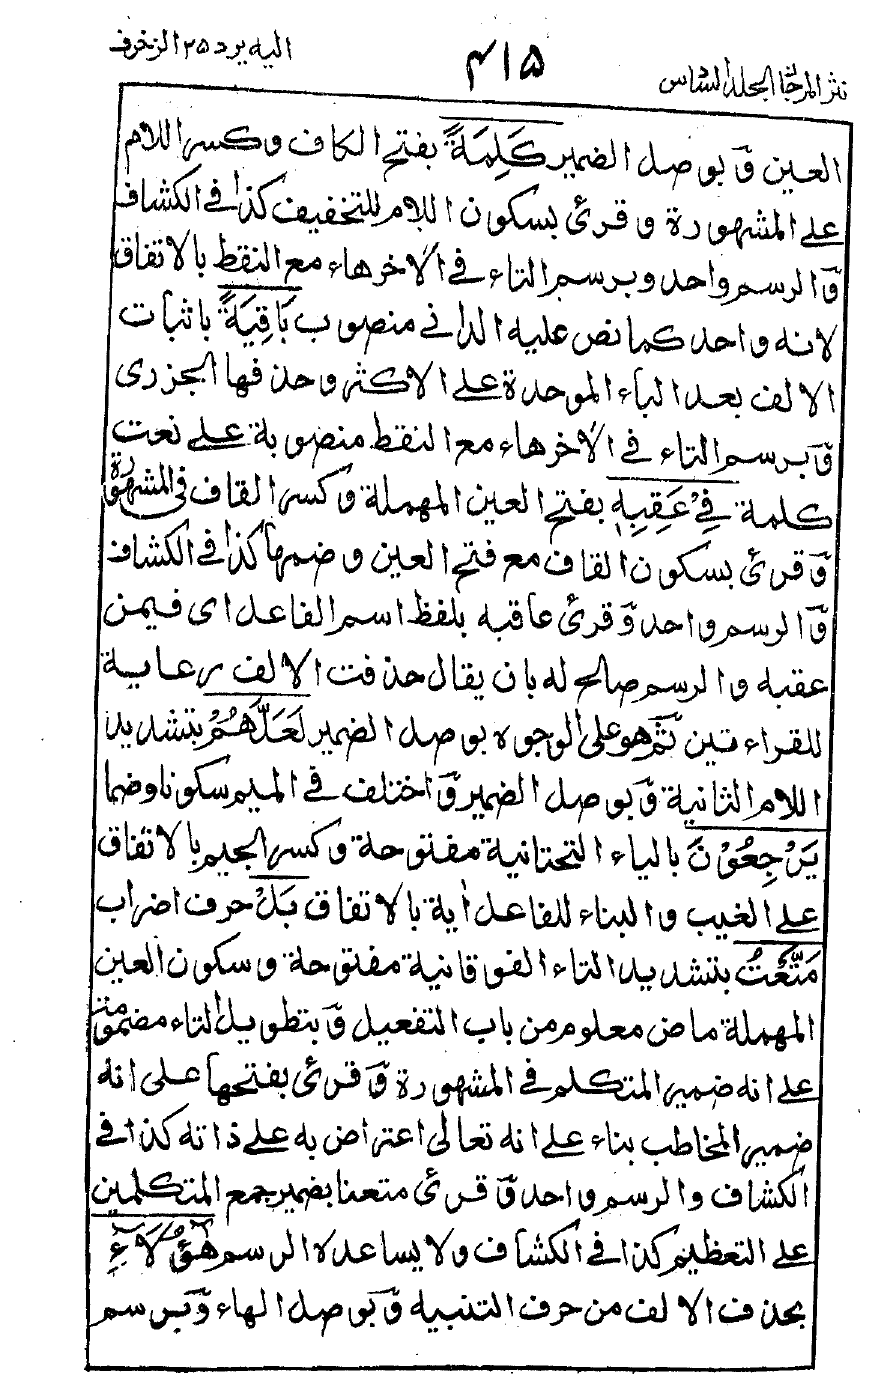 نثر المرجان المجلد السادس
٤١٥
اليه يرد ٢٥ الزخرف
العين وَبوصل الضمير كَلِمَةً بفتح الكاف وكسر اللام
على المشهورة وقرئ بسكون اللام للتخفيف كذا في الكشاف
وَالرسم واحد وبرسم التاء في الاخر هاء مع النقط بالاتفاق
لانه واحد كما نص عليه الداني منصوب بَاقِيَةً باثبات
الالف بعد الباء الموحدة على الاكثر وحذفها الجزرى
وَبرسم التاء في الاخر هاء مع النقط منصوبة على نعت
كلمة فِيْ عَقِبِهٖ بفتح العين المهملة وكسر القاف في المشهورة
وَقرئ بسكون القاف مع فتح العين وضمها كذا في الكشاف
وَالرسم واحد وَقرئ عاقبه بلفظ اسم الفاعل اى فيمن
عقبه والرسم صالح له بان يقال حذفت الالف رعاية
للقراءتين ثم هو على الوجوه بوصل الضمير لَعَلَّهُمْ بتشديد
اللام الثانية وَبوصل الضمير وَاختلف في الميم سكونا وضما
يَرْجِعُوْنَ بالياء التحتانية مفتوحة وكسر الجيم بالاتفاق
على الغيب والبناء للفاعل اٰية بالاتفاق بَلْ حرف اضراب
مَتَّعْتُ بتشديد التاء الفوقانية مفتوحة وسكون العين
المهملة ماض معلوم من باب التفعيل وَبتطويل التاء مضمومة
على انه ضمير المتكلم في المشهورة وَقرئ بفتحها على انه
ضمير المخاطب بناء على انه تعالى اعتراض به على ذاته كذا في
الكشاف والرسم واحد وَقرئ متعنا بضمير جمع المتكلمين
على التعظيم كذا في الكشاف ولا يساعده الرسم هٰٓؤُلَآءِ
بحذف الالف من حرف التنبيه وَبوصل الهاء وَبرسم